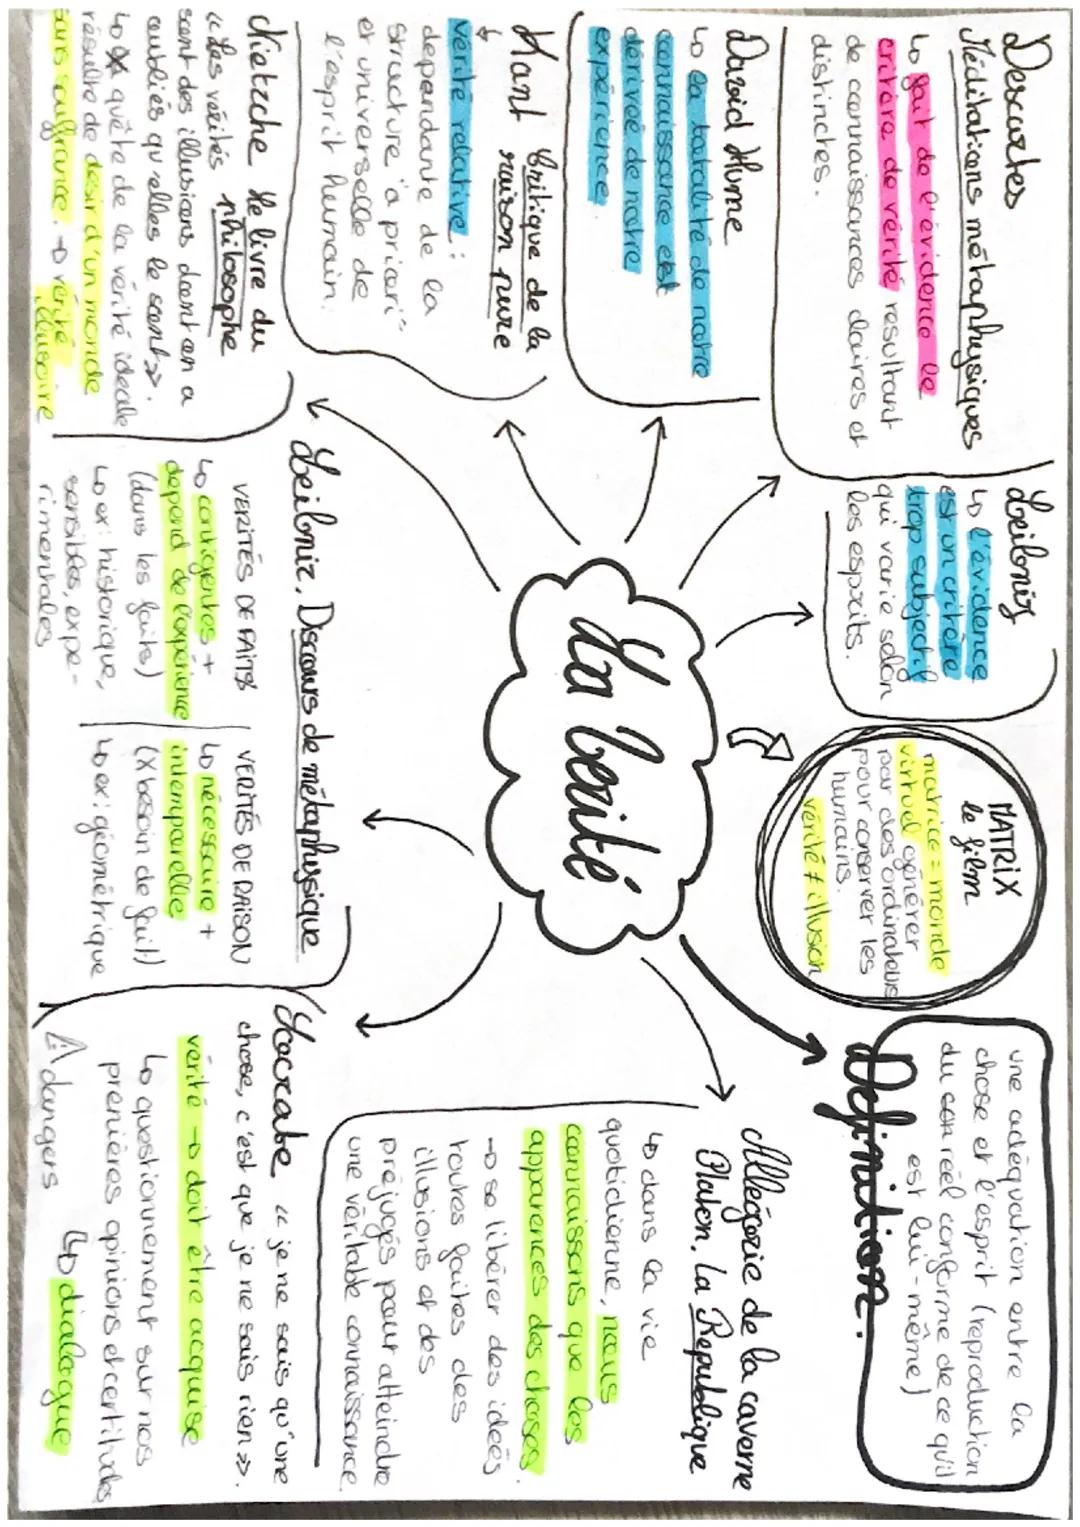 Descartes
Méditations métaphysiques
↳ fait de l'évidence le
critère de vérité resultant
de connaissances claires et
distinctes.
Leibniz
↳ l'évidence
est un critère
trop subjectif
qui varie selon
les esprits.
MATRiX
le film
matrice = monde
virtuel générer
par des ordinateurs
pour conserver les
humains.
vérité ≠ illusion
une adéquation entre la
chose et l'esprit (reproduction
du réel conforme de ce qu'il
est lui-même)
Définition.
David Hume
↳ la totalité de notre
connaissance est
dérivée de notre
expérience.
Kant Critique de la
raison pure
↓
vérité relative :
dependante de la
structure "a priori"
et universelle de
l'esprit humain.
La vérité
Allégorie de la caverne
Platon, La Republique
↳ dans la vie
quotidienne, nous
connaissons que les
apparences des choses
→ se libérer des idées
toutes faites des
illusions et des
préjugés pour atteindre
une véritable connaissance.
Nietzche Le livre du
philosophe
« Les vérités
sont des illusions dont on a
oubliés qu'elles le sont ».
↳ quête de la vérité idéale
résulte de désir d'un monde
sans souffrance. → vérité
illusoire
Leibniz, Discours de métaphysique
VERiTÉS DE FAiTS
↳ contigentes +
depend de l'expérience
(dans les faits)
↳ ex : historique,
sensibles, expe-
rimentales
VERiTÉS DE RAISON
↳ nécessaire +
intemporelle
(X besoin de fait)
↳ ex : géométrique
Socrate « je ne sais qu'une
chose, c'est que je ne sais rien ».
vérité → doit être acquise
↳ questionnement sur nos
premières opinions et certitudes
⚠ dangers ↳ dialogue